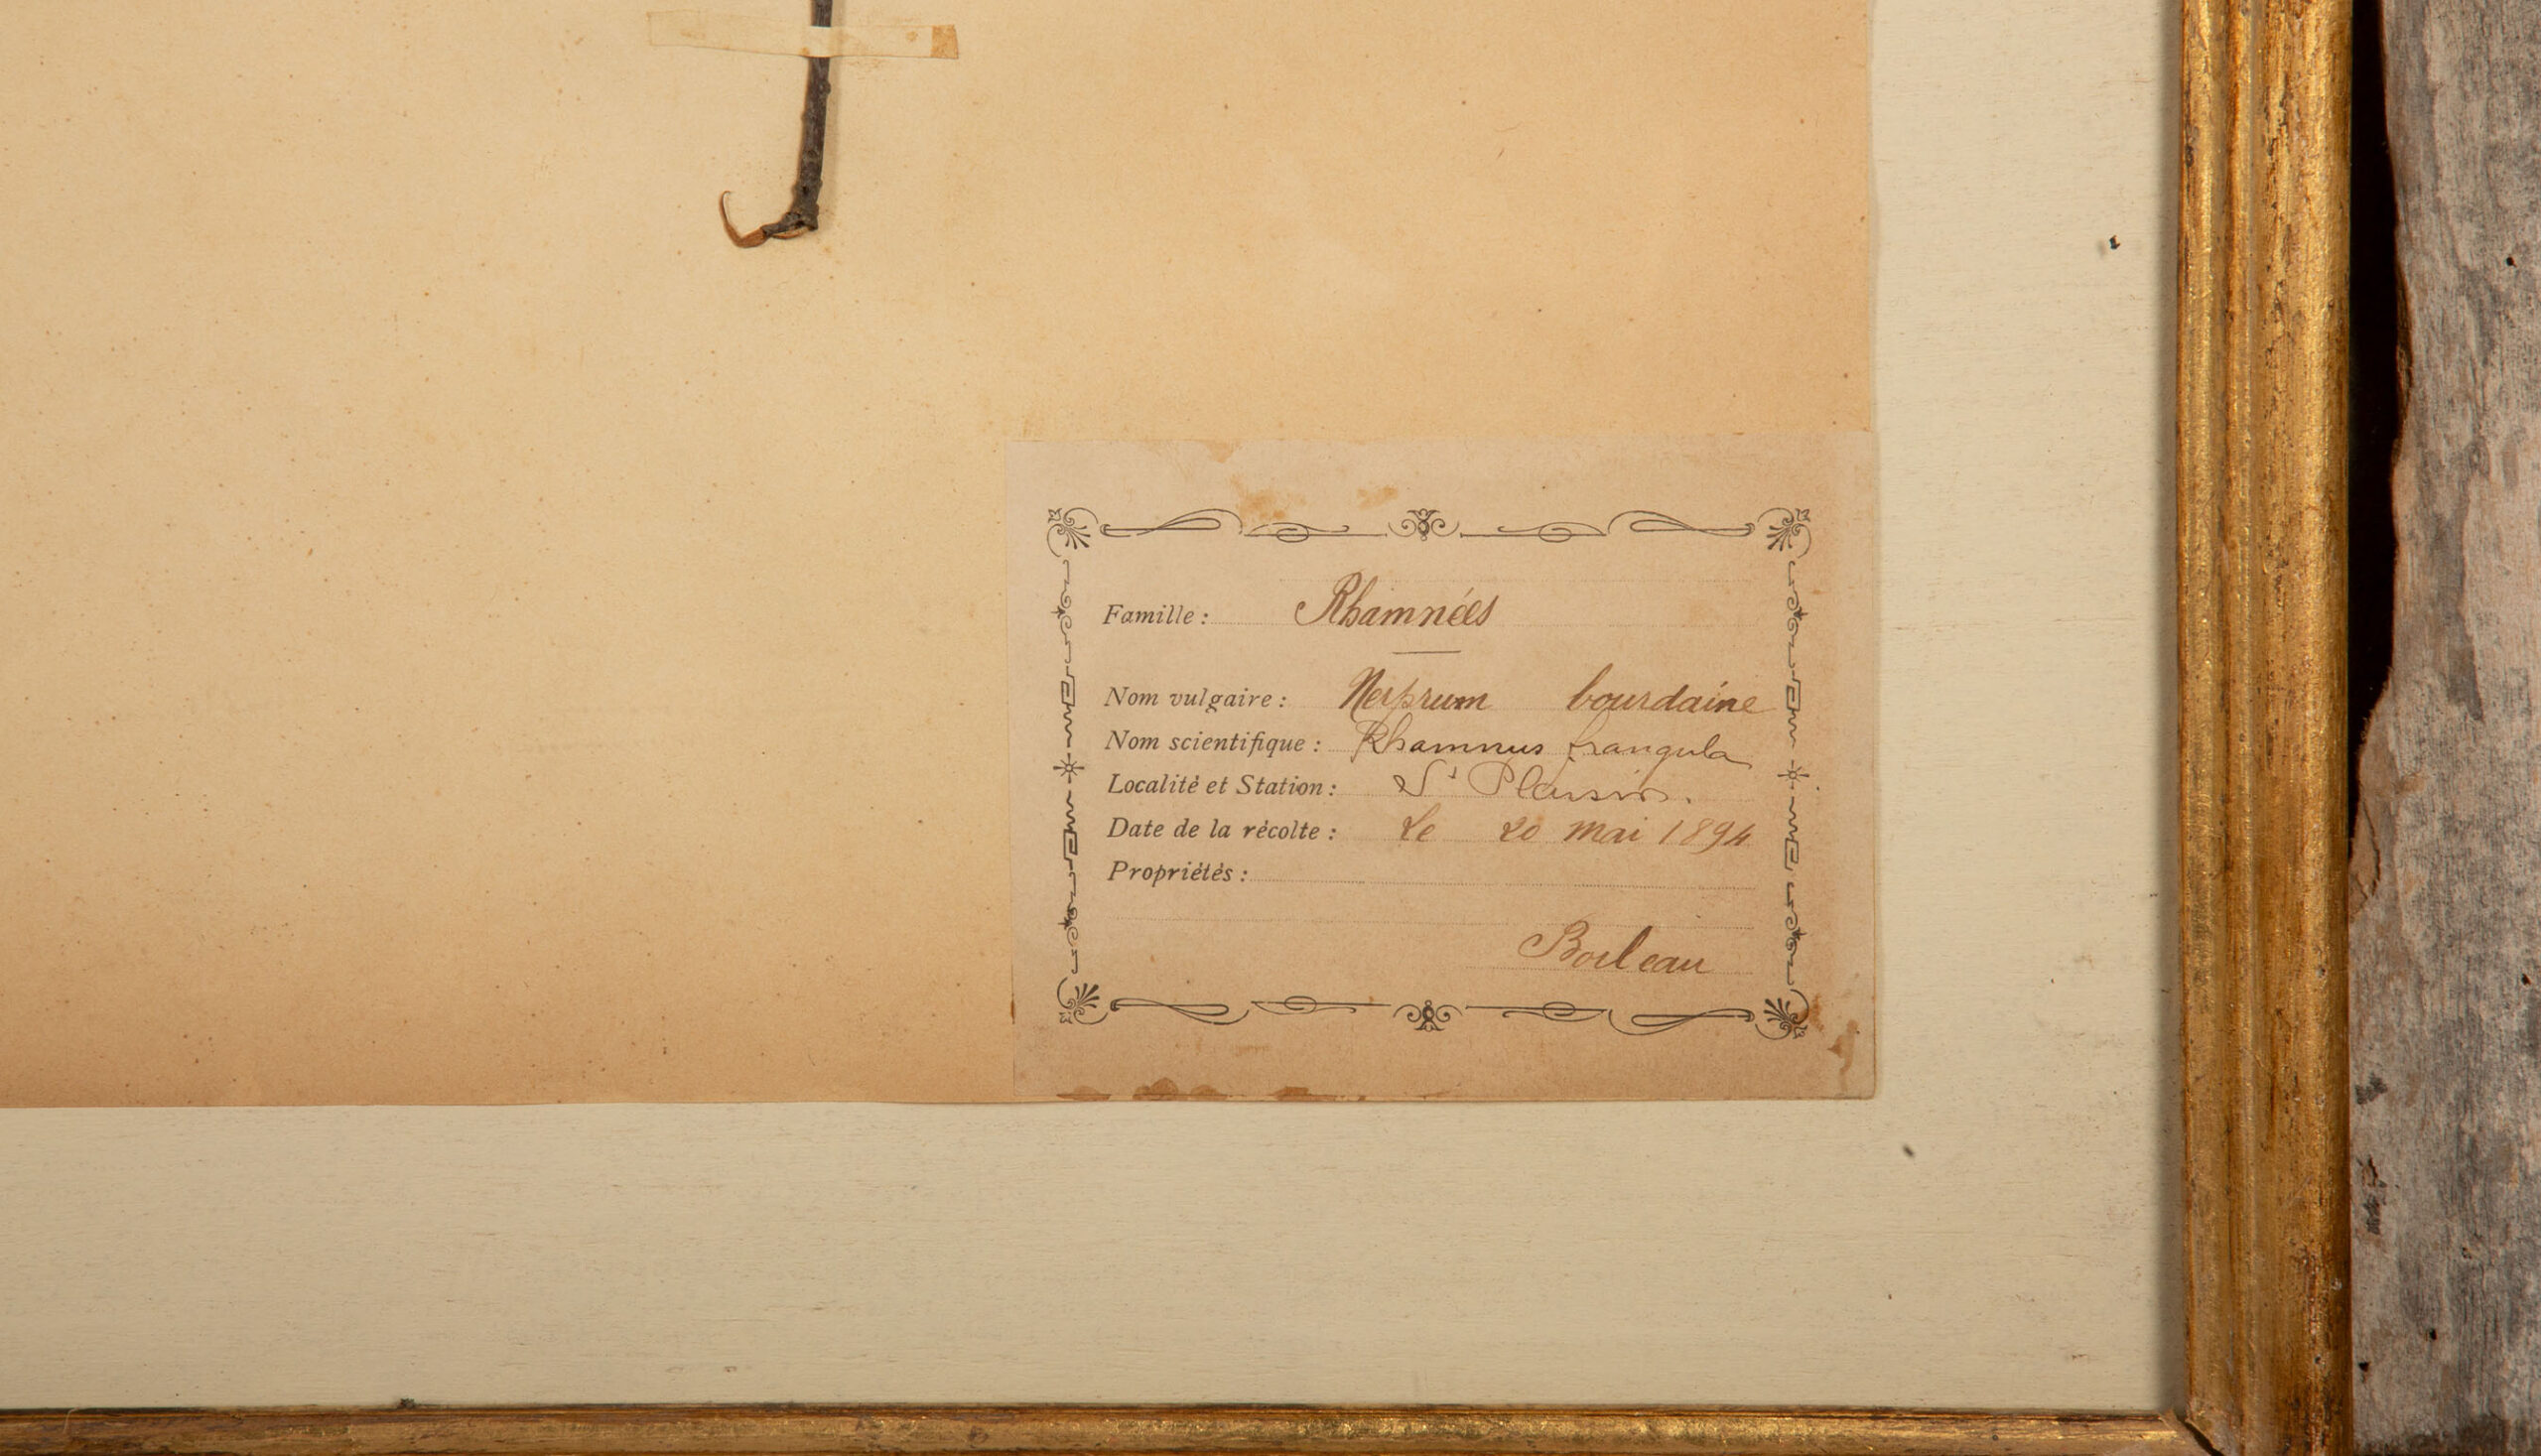 Famille : Rhamnées
Nom vulgaire : Nerprum bourdaine
Nom scientifique : Rhamnus frangula
Localité et Station : St
Date de la récolte : Le 20 mai 1894
Propriétés :
Boileau